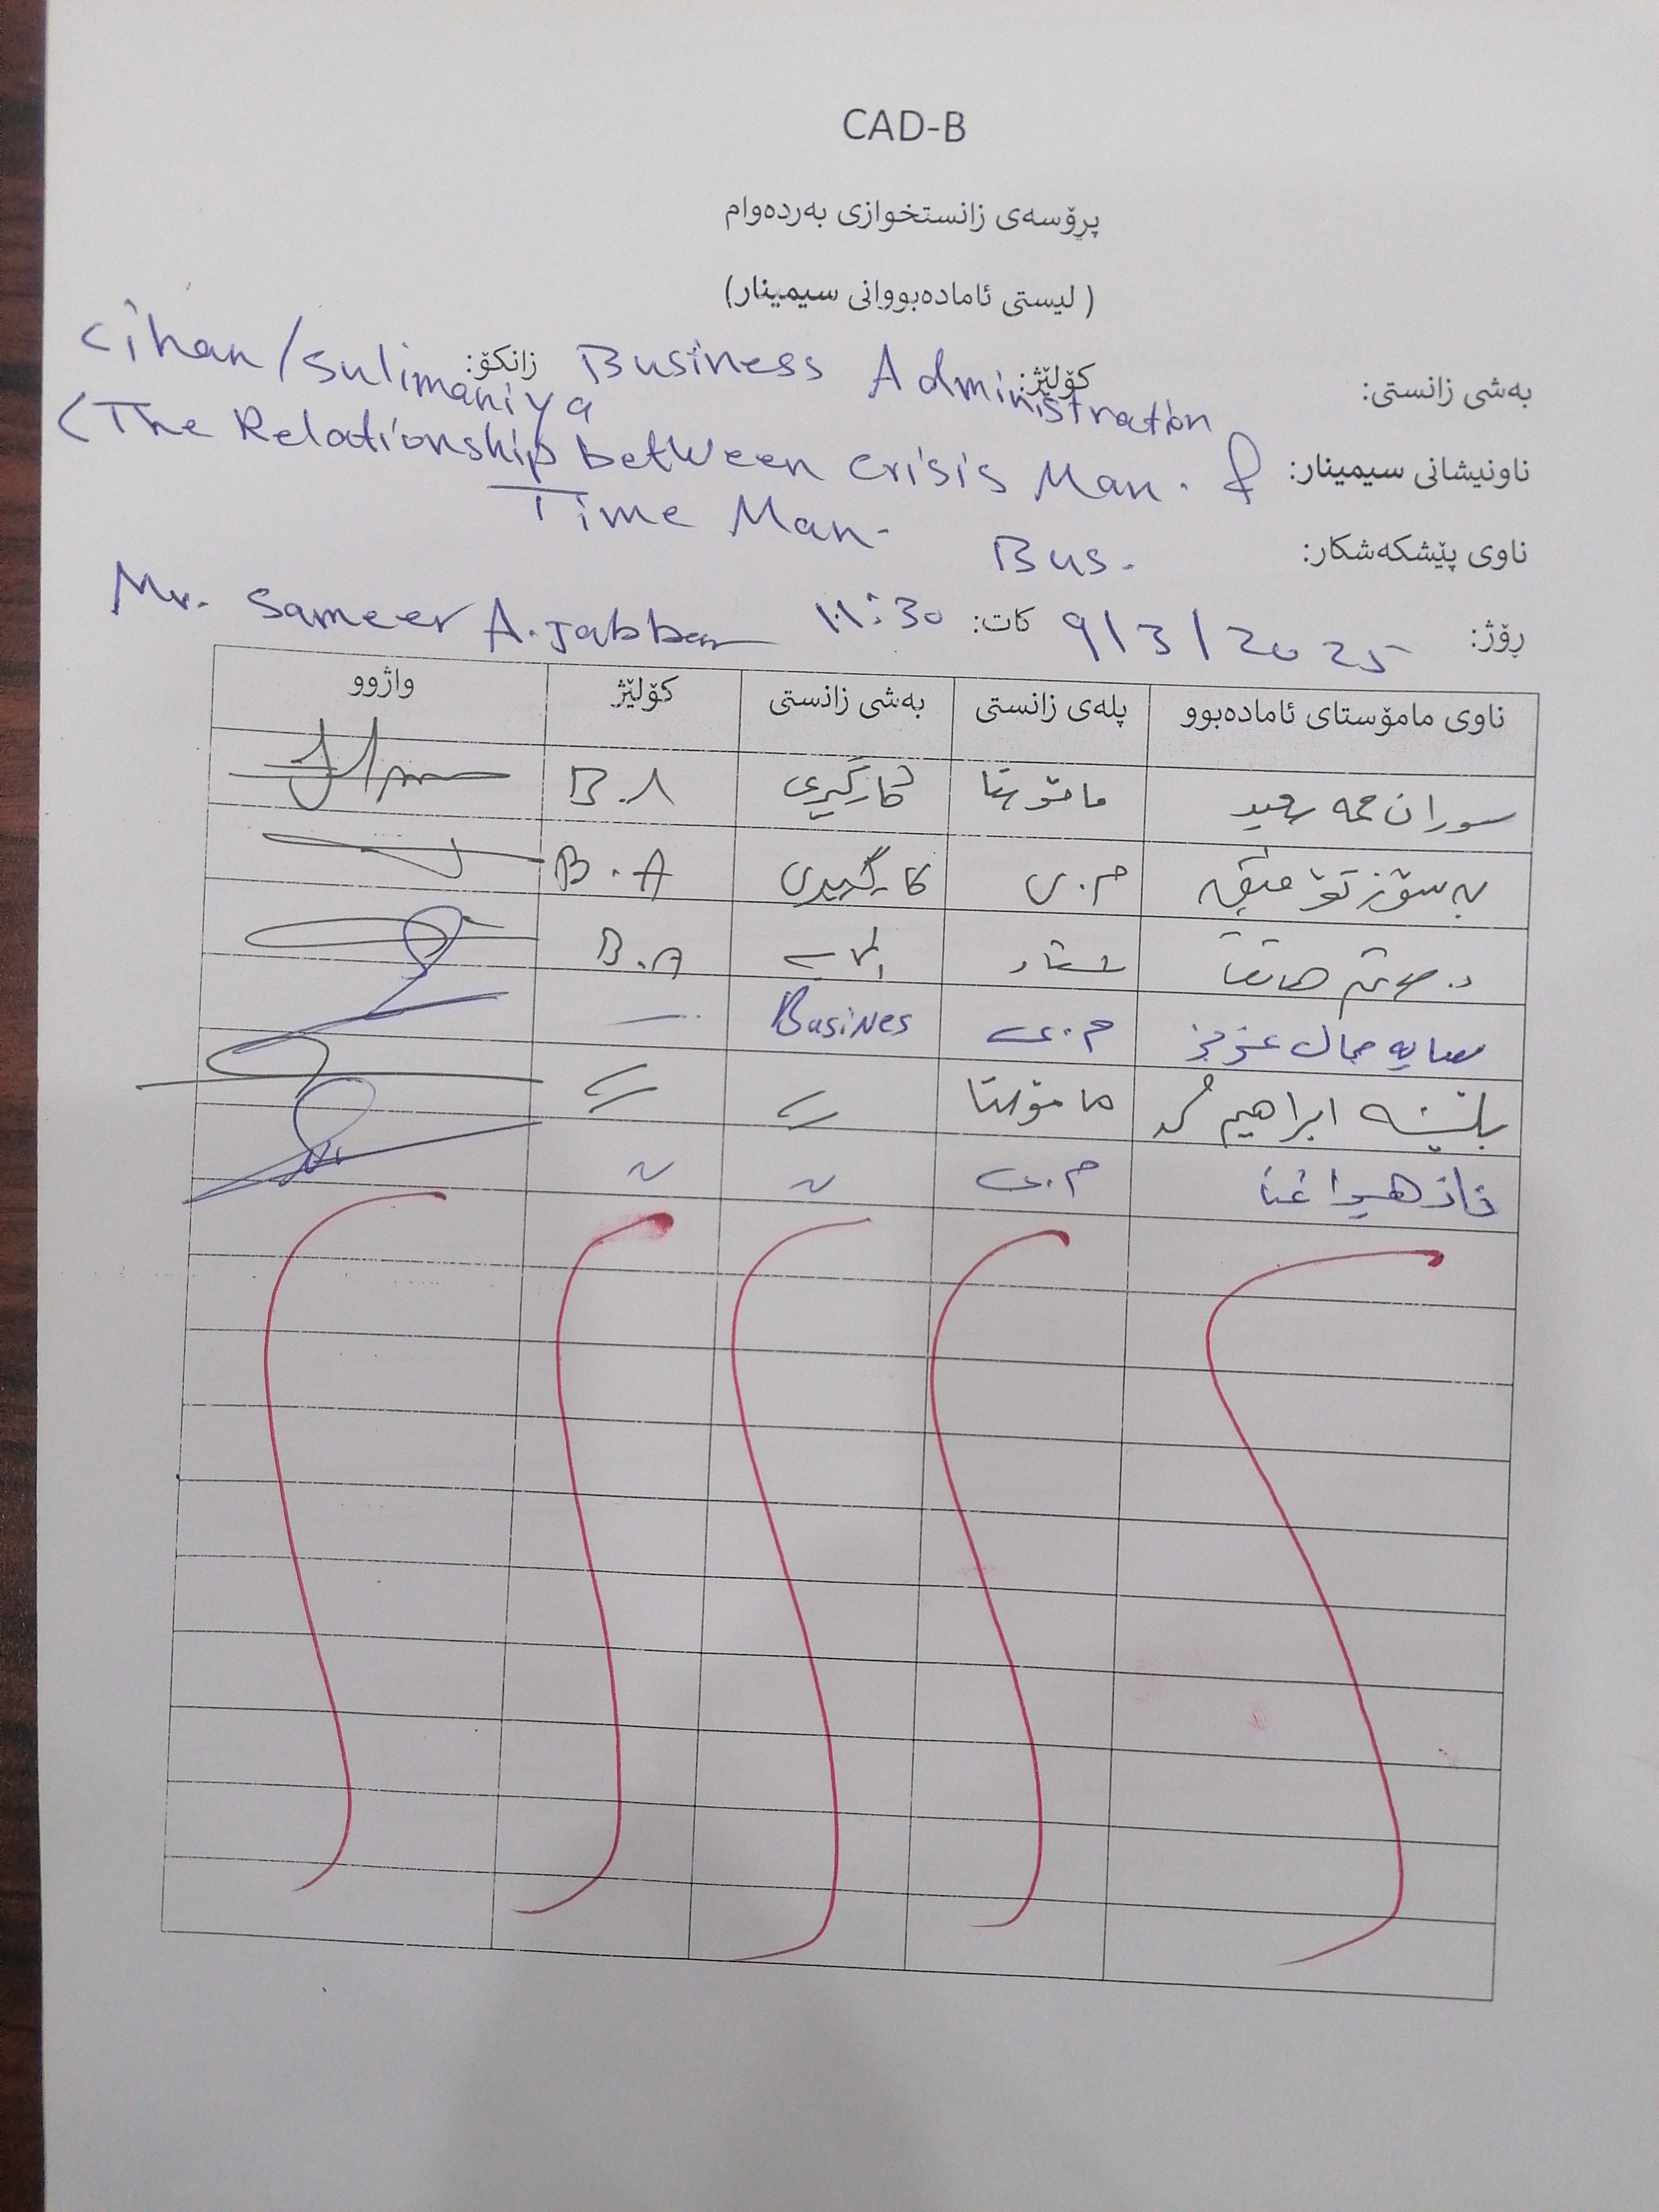 CAD-B
پڕۆسەی زانستخوازی بەردەوام
( لیستی ئامادەبووانی سیمینار)
بەشی زانستی: کۆلێژ: Business Administration زانکۆ: Cihan/Sulimaniya
ناونیشانی سیمینار: (The Relationship between Crisis Man. &
Time Man.
ناوی پێشکەشکار: Bus.
Mr. Sameer A. Jabbar
ڕۆژ: 9/3/2025 کات: 11:30
ناوی مامۆستای ئامادەبوو پلەی زانستی بەشی زانستی کۆلێژ واژوو
سوران حمە سعید مامۆستا کارگێری B.A
بە سۆز تۆفیق م.ی کارگێری B.A
د. B.A
جمال م.ی Busines
ابراهیم مامۆستا 〃 〃
هیوا م.ی ~ ~